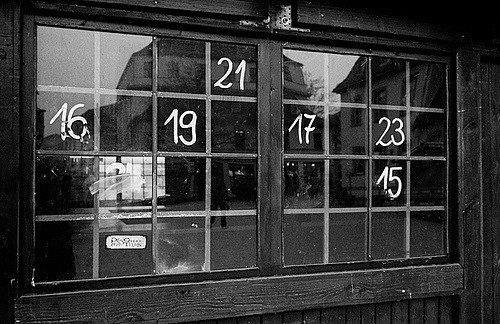 21
16 19 17 23
15